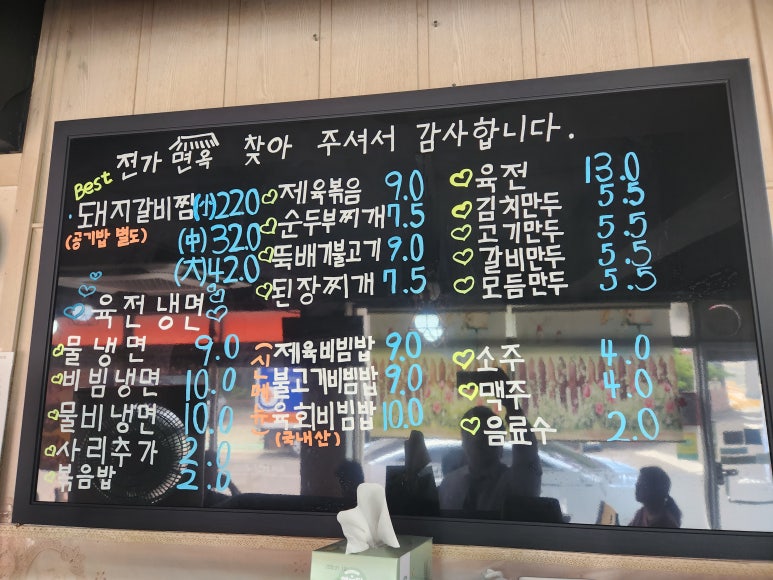 전가 면옥 찾아 주셔서 감사합니다.
Best
돼지갈비찜 (小) 22.0
(공기밥 별도) (中) 32.0
(大) 42.0
육전냉면
물냉면 9.0
비빔냉면 10.0
물비냉면 10.0
사리추가 2.0
볶음밥 2.0
제육볶음 9.0
순두부찌개 7.5
뚝배기불고기 9.0
된장찌개 7.5
제육비빔밥 9.0
불고기비빔밥 9.0
육회비빔밥 10.0
(국내산)
육전 13.0
김치만두 5.5
고기만두 5.5
갈비만두 5.5
모듬만두 5.5
소주 4.0
맥주 4.0
음료수 2.0